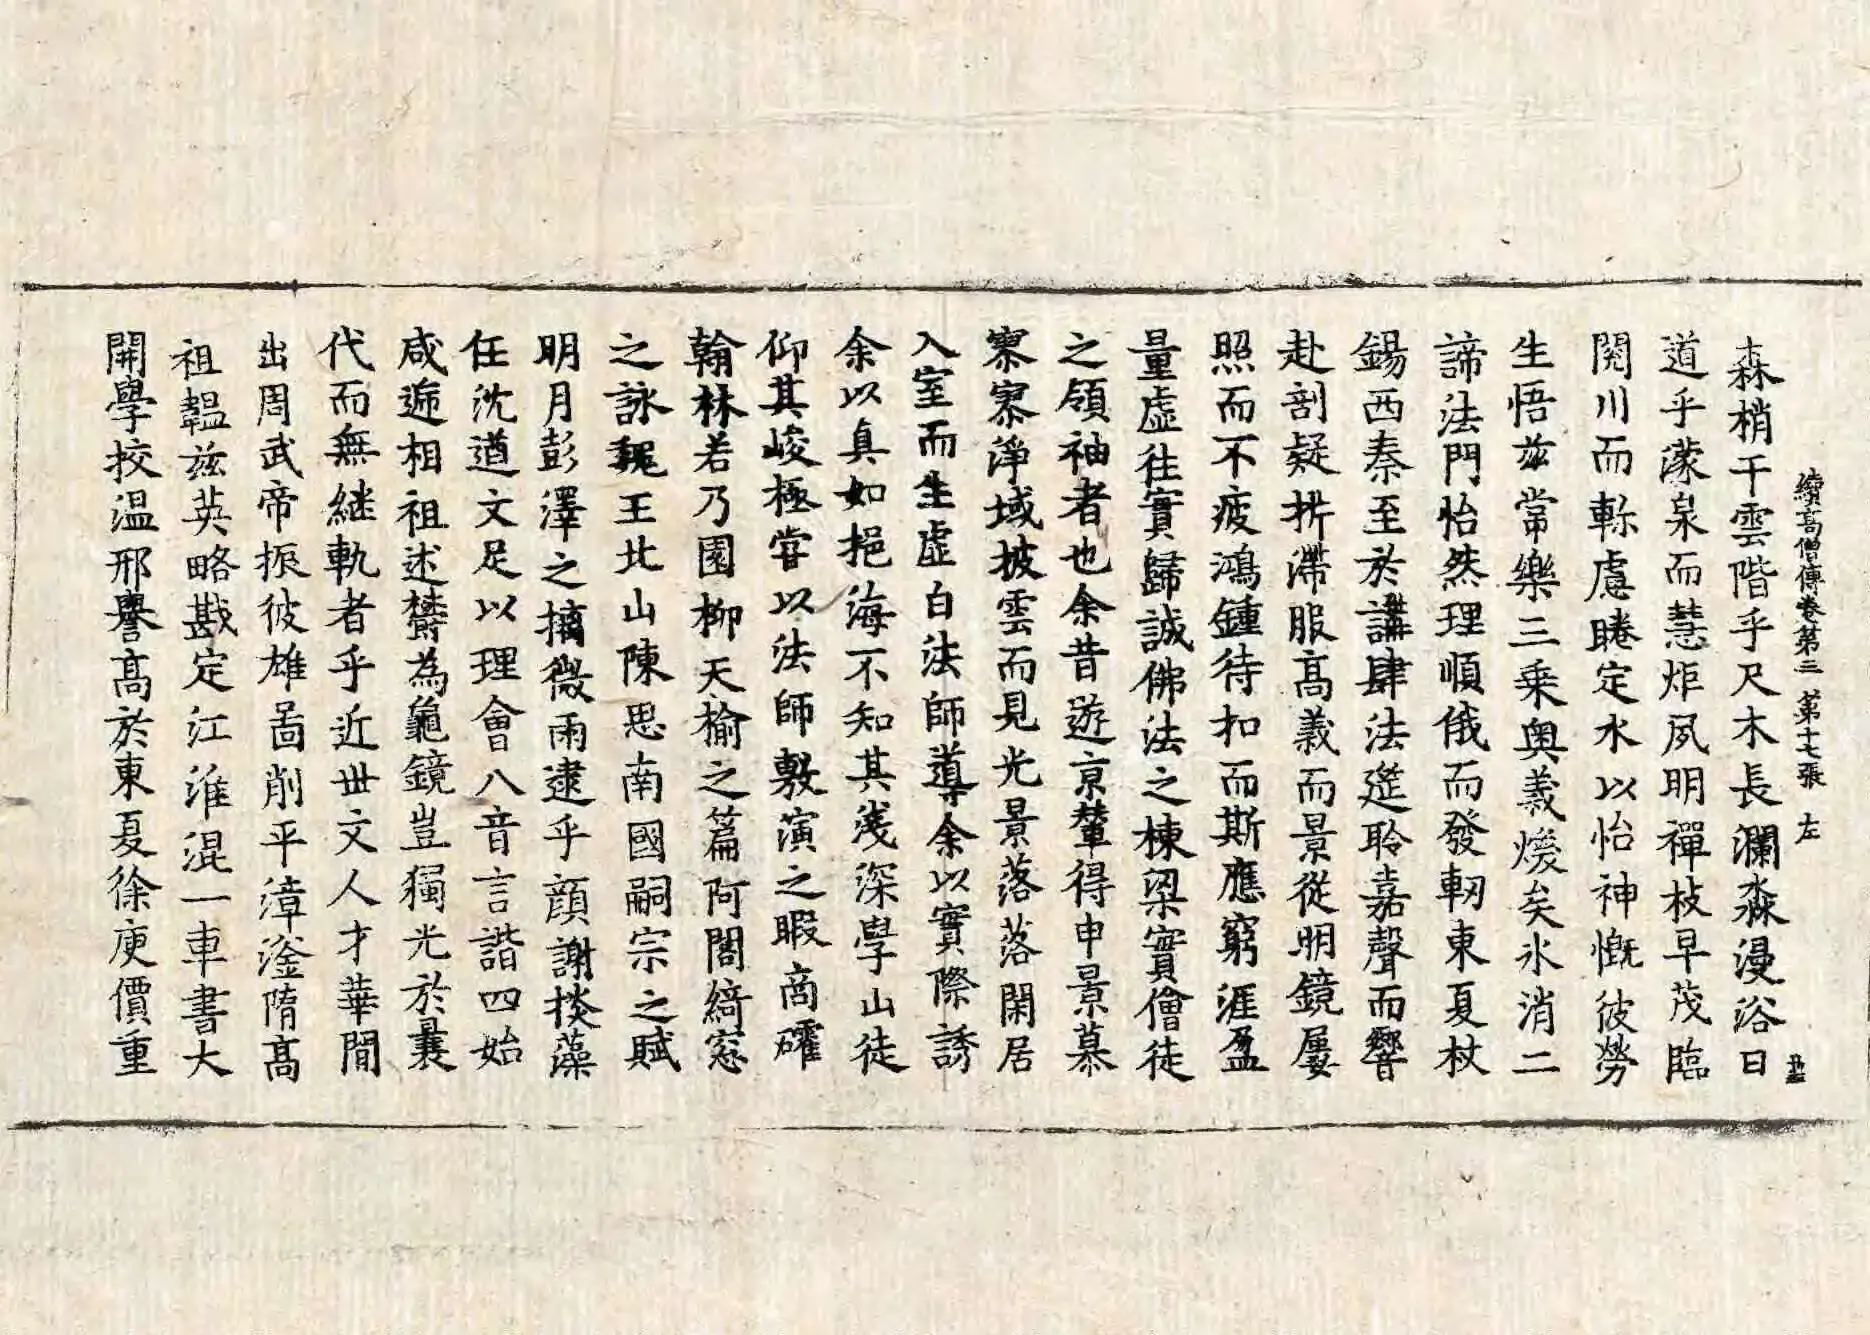 續高僧傳卷第三 第十七張 左
森梢干雲階乎尺木長瀾淼漫浴日
道乎濛泉而慧炬夙明禪枝早茂臨
閱川而軫慮睠定水以怡神慨彼勞
生悟茲常樂三乘奧義煥矣氷消二
諦法門怡然理順俄而發軔東夏杖
錫西秦至於講肆法莚聆嘉聲而響
赴剖疑析滯服高義而景從明鏡屢
照而不疲鴻鍾待扣而斯應窮涯盈
量虛往實歸誠佛法之棟梁實僧徒
之領袖者也余昔遊京輦得申景慕
寥寥淨域披雲而見光景落落閑居
入室而生虛白法師導余以實際誘
余以真如挹海不知其淺深學山徒
仰其峻極嘗以法師敷演之暇商礭
翰林若乃園柳天榆之篇阿閣綺窓
之詠魏王北山陳思南國嗣宗之賦
明月彭澤之摛微雨逮乎顔謝掞藻
任沈遒文足以理會八音言諧四始
咸遞相祖述欝為龜鏡豈獨光於曩
代而無継軌者乎近丗文人才華閒
出周武帝振彼雄啚削平漳滏隋高
祖韞茲英略戡定江淮混一車書大
開學校溫邢譽高於東夏徐庾價重